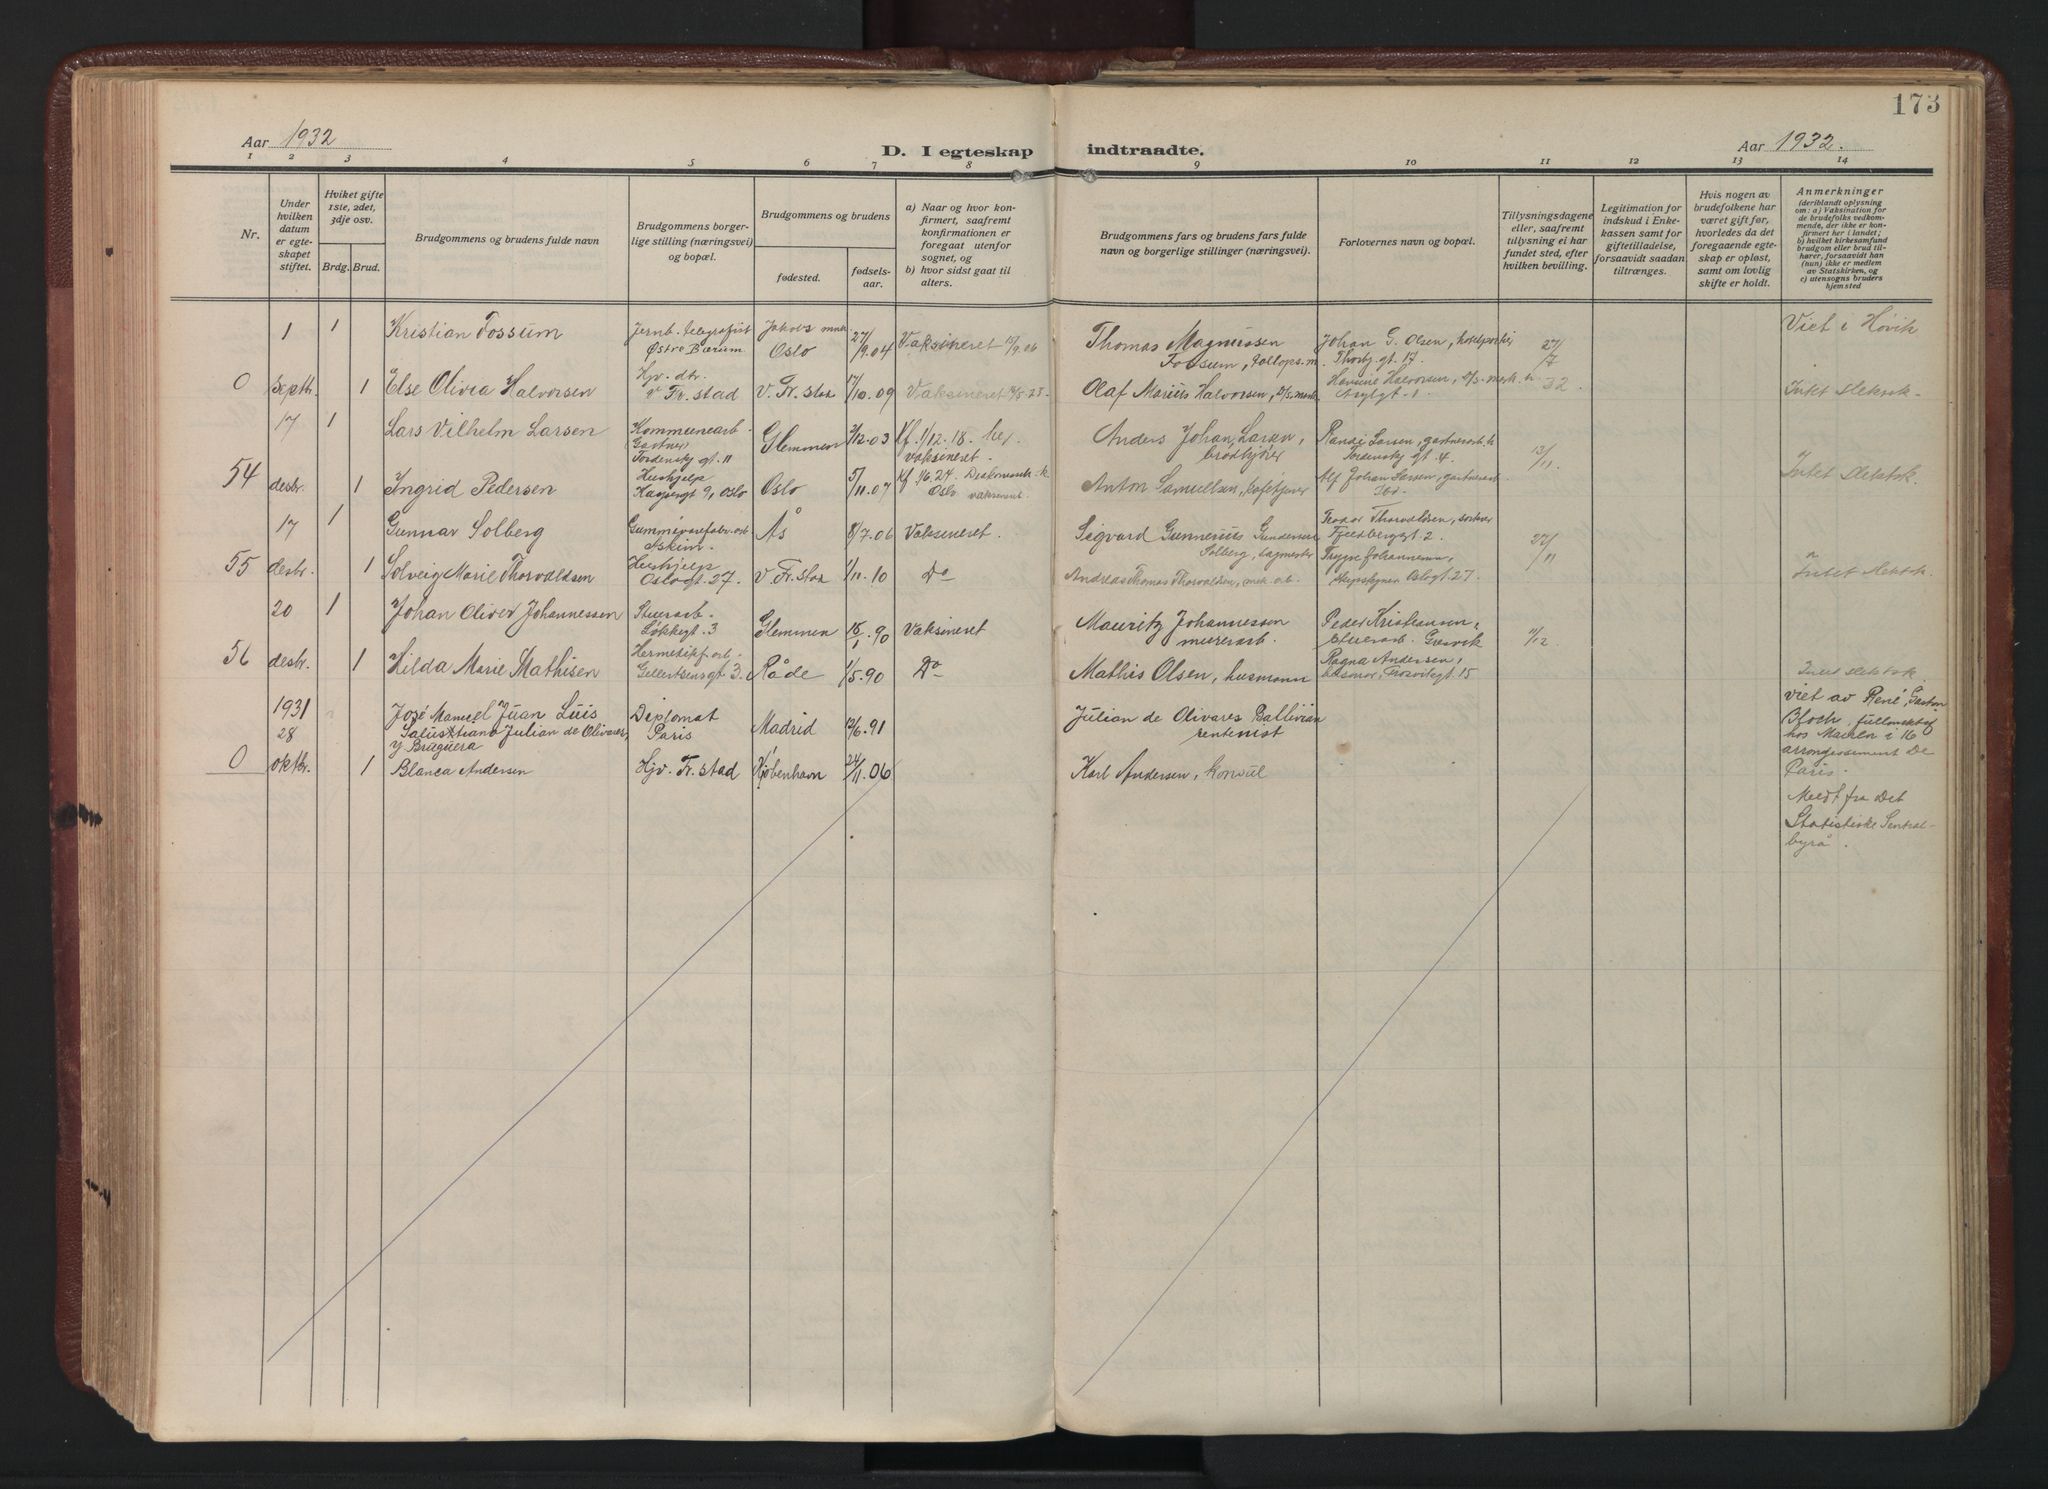 173
Aar 1932
D. I egteskap indtraadte.
Aar 1932.
1 2 3 4 5 6 7 8 9 10 11 12 13 14
Nr.
Under hvilken datum er egteskapet stiftet.
Hviket gifte 1ste, 2det, 3dje osv.
Brdg. Brud.
Brudgommens og brudens fulde navn
Brudgommens borgerlige stilling (næringsvei) og bopæl.
Brudgommens og brudens
fødested.
fødselsaar.
a) Naar og hvor konfirmert, saafremt konfirmationen er foregaat utenfor sognet, og
b) hvor sidst gaat til alters.
Brudgommens fars og brudens fars fulde navn og borgerlige stillinger (næringsvei).
Forlovernes navn og bopæl.
Tillysningsdagene eller, saafremt tillysning ei har fundet sted, efter hvilken bevilling.
Legitimation for indskud i Enkekassen samt for giftetilladelse, forsaavidt saadan tiltrænges.
Hvis nogen av brudefolkene har været gift før, hvorledes da det foregaaende egteskap er opløst, samt om lovlig skifte er holdt.
Anmerkninger (deriblandt oplysning om: a) Vaksination for de brudefolks vedkommende, der ikke er konfirmert her i landet; b) hvilket kirkesamfund brudgom eller brud tilhører, forsaavidt han (hun) ikke er medlem av Statskirken, og c) utensogns bruders hjemsted
1 1 Kristian Fossum Jernb. telegrafist Østre Bærum Oslo 27/9.04 Vaksineret 15/9.06 Thomas Magnussen Fossum, Johan G. Olsen, hotelportier Thorbj.gt. 17. 27/7 Viet i Høvik
0 Septbr. 1 Else Olivia Halvorsen Hjv. dtr. v Fr. stad V. Fr. stad 17/10.09 Vaksineret Olaf Marius Halvorsen, Halvorsen, 32 Intet slektsk.
17 1 Lars Vilhelm Larsen Kommunearb. Gartner Tordenskj. gt. 11 Glemmen 3/12.03 Kf. 1/12.18. vaksineret. Anders Johan Larsen, brødkjører Randi Larsen, Tordenskj gt. 4. 13/11.
54 desbr. 1 Ingrid Pedersen Hushjelp 9, Oslo Oslo 5/11.07 Kf. 1/6.24. Oslo vaksineret. Anton Samuelsen, Alf Johan Larsen, gartnerarb. Ibd. Intet slektsk.
17 1 Gunnar Solberg Gummivarefabr. arb. Askim. Ås 8/7.06 Vaksineret. Sigvard Gunnerius Gundersen Solberg, sagmester Thorvaldsen, Fjeldberggt 2. 27/11
55 desbr. 1 Solveig Marie Thorvaldsen Hushjelp Oslogt. 27. V. Fr. stad 1/11.10 Do Andreas Thomas Thorvaldsen, mek. arb. Trygve Johannesen, Oslogt. 27. Intet slektsk.
20 1 Johan Oliver Johannessen Stuerarb. Løkkegt. 3 Glemmen 18/1.90 Vaksineret Mauritz Johannessen murerarb. Peder Kristiansen, stuerarb. Gresvik 11/12
56 desbr. 1 Hilda Marie Mathisen Hermetikkf. arb. Gellertsensgt 3. Råde 1/5.90 Do Mathis Olsen, husmann Ragna Andersen, Trosvikgt. 15 Intet slektsk.
1931 28 José Manuel Juan Luis Salustiano Julian de Olivares y Bruguera Diplomat Paris Madrid 13/6.91 Julian de Olivares Ballivian rentenist viet av René Gaston Bloch, hos Mairen i 16 arrondissement De Paris.
0 oktbr. 1 Blanca Andersen Hjv. Fr. stad Kjøbenhavn 24/11.06 Karl Andersen, konsul Meldt fra Det Statistiske Sentralbyrå.